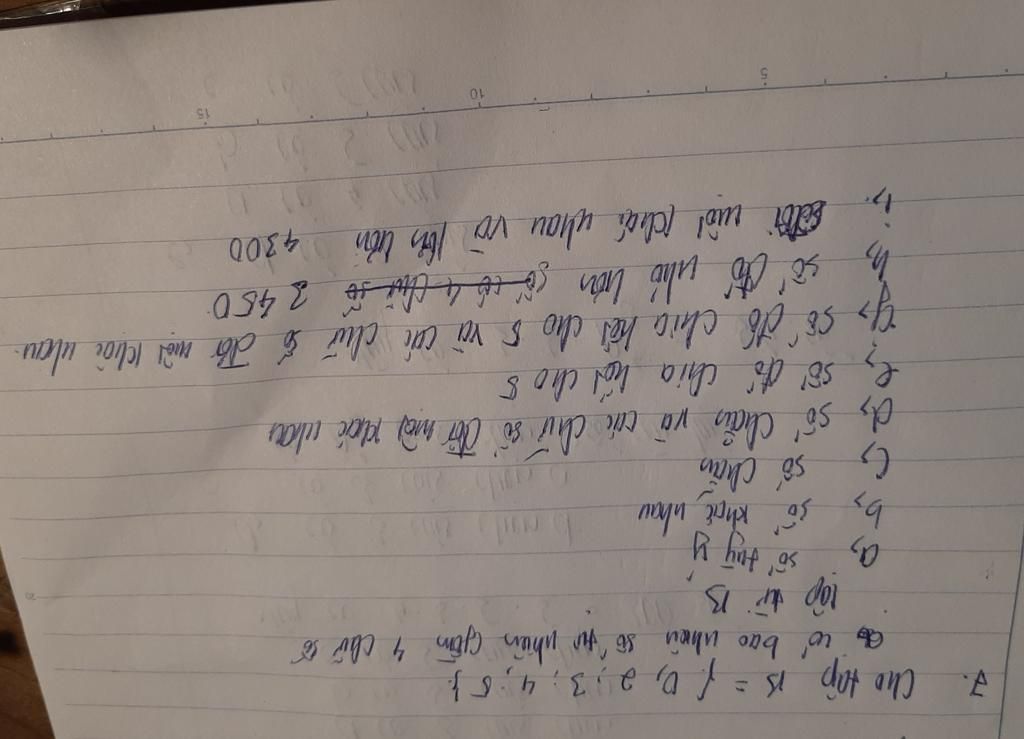 7. Cho tập B = { 0, 2; 3; 4; 5 }.
có bao nhiêu số tự nhiên gồm 4 chữ số
lập từ B
a, số tuỳ ý
b, số khác nhau
c, số chẵn
d, số chẵn và các chữ số đôi một khác nhau
e, số đó chia hết cho 5
g, số đó chia hết cho 5 và các chữ số đôi một khác nhau.
h, số đó nhỏ hơn số có 4 chữ số 3450.
i, đôi một khác nhau và lớn hơn 4300
5 10 15 20